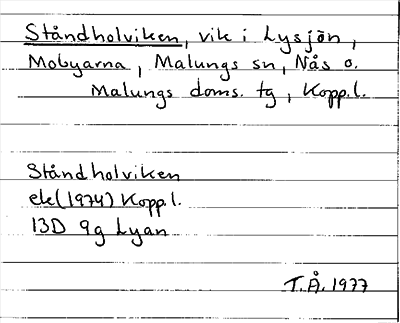 Ståndholviken, vik i Lysjön,
Mobyarna, Malungs sn, Nås o.
Malungs doms. tg, Kopp.l.
Ståndholviken
ek(1974) Kopp.l.
13D 9g Lyan
T.Å. 1977